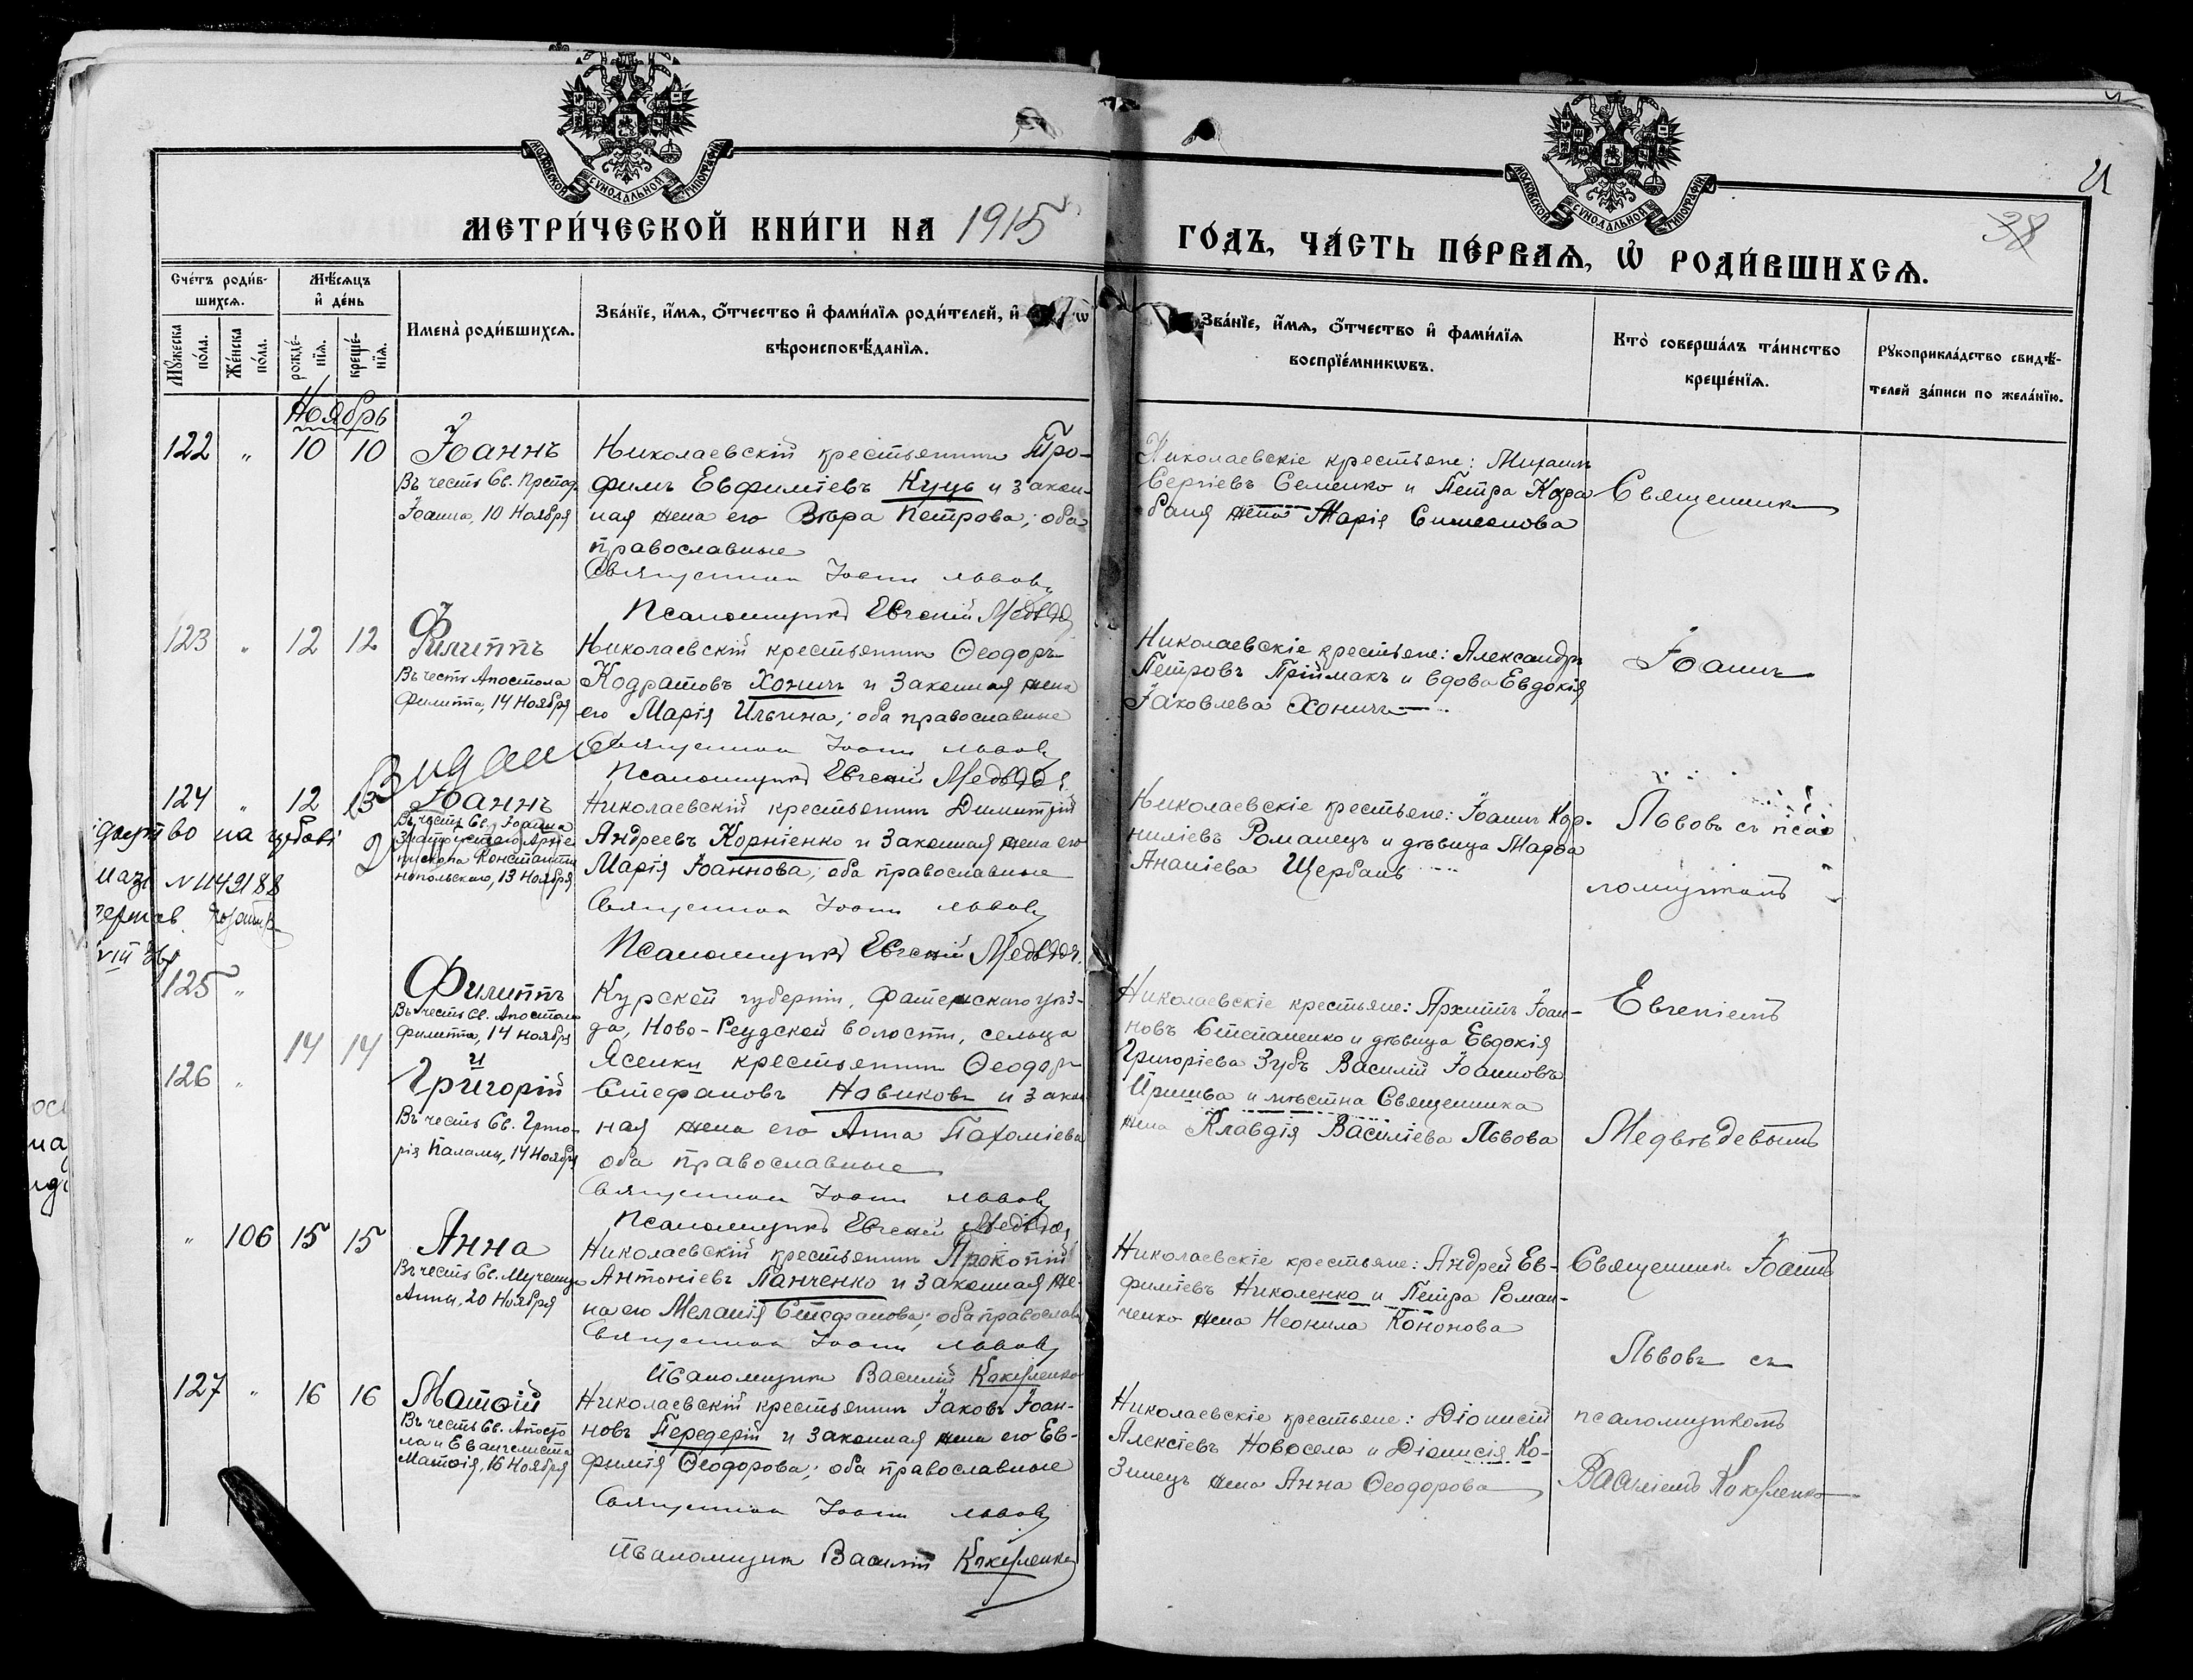 МОСКОВСКОЙ СУНОДАЛЬНОЙ ТИПОГРАФІИ
МОСКОВСКОЙ СУНОДАЛЬНОЙ ТИПОГРАФІИ
21
38
МЕТРИ́ЧЕСКОЙ КНИ́ГИ НА 1915
ГО́ДЪ, ЧА́СТЬ ПЕ́РВАѦ, Ѿ РОДИ́ВШИХСѦ.
Сче́тъ роди́в-
шихсѧ.
Мѣ́сѧцъ
и҆ де́нь
Мꙋ́жеска
по́ла.
Же́нска
по́ла.
рожде́-
нїѧ.
креще́-
нїѧ.
Имена̀ роди́вшихсѧ.
Зва́нїе, и҆́мѧ, ѻ҆́тчество и҆ фами́лїѧ роди́телей, и҆
вѣроисповѣ́данїѧ.
Зва́нїе, и҆́мѧ, ѻ҆́тчество и҆ фами́лїѧ
воспрїе́мникѡвъ.
Кто̀ соверша́лъ та́инство
креще́нїѧ.
Рꙋкоприкла́дство свидѣ́-
телей за́писи по жела́нїю.
Ноябрь
122 „ 10 10
Іоаннъ
Въ честь Св.
Іоанна, 10 Ноября
Николаевскій крестьянинъ Тро-
фимъ Евфиміевъ Куць и закон-
ная жена его Вѣра Петрова; оба
православные
Священникъ Іоаннъ Львовъ
Псаломщикъ Евгеній Медвѣдевъ
Николаевскіе крестьяне: Михаилъ
Сергіевъ Семенко и Петра Кара
баня жена Марія Симеонова
Священникъ
123 „ 12 12
Филиппъ
Въ честь Апостола
Филиппа, 14 Ноября
Николаевскій крестьянинъ Ѳеодоръ
Кодратовъ Хоничъ и законная жена
его Марія Ильина; оба православные
Священникъ Іоаннъ Львовъ
Псаломщикъ Евгеній Медвѣдевъ
Николаевскіе крестьяне: Александръ
Петровъ Пріймакъ и вдова Евдокія
Іаковлева Хоничъ
Іоаннъ
124 „ 12 13
Іоаннъ
Въ честь Св. Іоанна
Златоустаго Архіе-
пископа Константи
нопольскаго, 13 Ноября
Николаевскій крестьянинъ Димитрій
Андреевъ Корніенко и законная жена его
Марія Іоаннова; оба православные
Священникъ Іоаннъ Львовъ
Псаломщикъ Евгеній Медвѣдевъ
Николаевскіе крестьяне: Іоаннъ Кор-
ниліевъ Романецъ и дѣвица Марѳа
Ананіева Щербань
Львовъ съ псао
ломщикомъ
125 „
14 14
Филиппъ
Въ честь Св. Апостола
Филиппа, 14 Ноября
и
126 „
Григорій
Въ честь Св. Григо-
рія Паламы, 14 Ноября
Курской губерніи, Фатежскаго уѣз-
да, Ново-Реудской волости, сельца
Ясенки крестьянинъ Ѳеодоръ
Стефановъ Новиковъ и закон
ная жена его Анна Пахоміева
оба православные
Священникъ Іоаннъ Львовъ
Псаломщикъ Евгеній Медвѣдевъ
Николаевскіе крестьяне: Архиппъ Іоан-
новъ Степаненко и дѣвица Евдокія
Григоріева Зубъ Василій Іоанновъ
и мѣстна Священника
жена Клавдія Василіева Львова
Евгеніемъ
Медвѣдевымъ
„ 106 15 15
Анна
Въ честь Св. Мученицы
Анны, 20 Ноября
Николаевскій крестьянинъ Прокопій
Антоніевъ Панченко и законная же-
на его Меланія Стефанова; оба православ
Священникъ Іоаннъ Львовъ
Псаломщикъ Василій
Николаевскіе крестьяне: Андрей Ев-
фиміевъ Николенко и Петра Роман-
ченко жена Неонила Кононова
Священникъ Іоаннъ
Львовъ съ
127 „ 16 16
Матѳій
Въ честь Св. Апосто
ла и Евангелиста
Матѳія, 16 Ноября
Николаевскій крестьянинъ Іаковъ Іоан-
новъ Передерій и законная жена его Ев-
фимія Ѳеодорова; оба православные
Священникъ Іоаннъ Львовъ
Псаломщикъ Василій
Николаевскіе крестьяне: Діонисій
Алексіевъ Новосела и Діонисія Ко-
зинецъ жена Анна Ѳеодорова
псаломщикомъ
Василіемъ